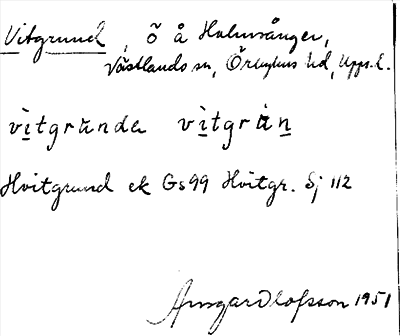 Vitgrund, ö å Holmsånger,
Västlands sn, Örbyhus hd, Upps. l.
vìtgrùnda vìtgrùn
Hvitgrund ek Gs 99 Hvitgr. Sj 112
Ansgar Olofsson 1951